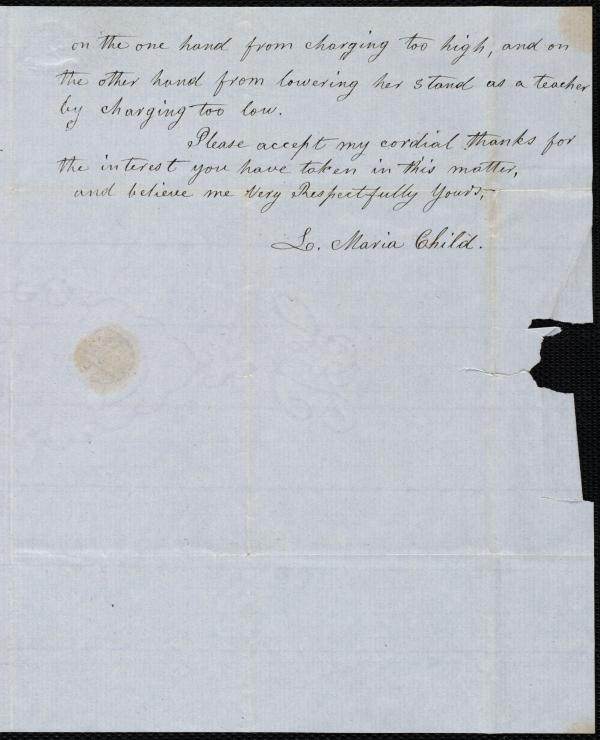 on the one hand from charging too high, and on
the other hand from lowering her stand as a teacher
by charging too low.
Please accept my cordial thanks for
the interest you have taken in this matter,
and believe me Very Respectfully Yours,
L. Maria Child.